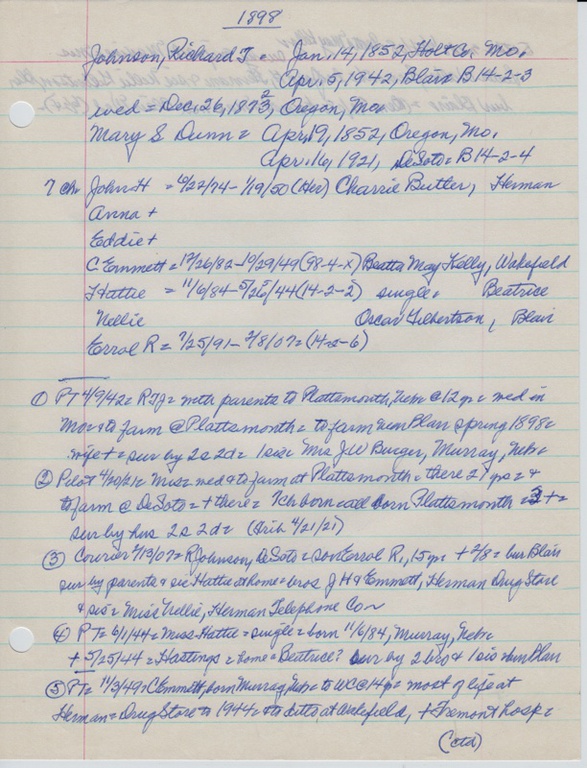 1898
Johnson, Richard T = Jan. 14, 1852, Holt Co, Mo,
Apr. 5, 1942, Blair B 14-2-3
wed = Dec, 26, 1873, Oregon, Mo,
Mary S Dunn = Apr, 19, 1852, Oregon, Mo,
Apr. 16, 1921, DeSoto = B 14-2-4
7 ch John H = 10/22/74 - 1/19/50 (Her) Charrie Butler, Herman
Anna +
Eddie +
C Emmett = 12/26/82 - 10/29/49 (98-4-X) Beatta May Kelly, Wakefield
Hattie = 11/6/84 - 5/25/44 (14-2-2) single = Beatrice
Nellie Oscar Gilbertson, Blair
Errol R = 7/25/91 - 2/8/07 = (14-2-6)
① PT 4/9/42 = RTJ = with parents to Plattsmouth, Nebr @ 12 yr = wed in
Mo = to farm @ Plattsmouth = to farm nwn Blair spring 1898 =
wife + = sur by 2s 2d = 1 sis = Mrs J W Burger, Murray, Nebr
② Pilot 4/20/21 = Miss = wed & to farm at Plattsmouth = there 27 yrs = &
to farm @ DeSoto = + there = 7 ch born = all born Plattsmouth = 3 + =
sur by hus 2s 2d = (Trib 4/21/21)
③ Courier 2/13/07 = R Johnson, DeSoto = son Errol R, 15 yr + 2/8 = bur Blair
sur by parents & sis Hattie at home = bros J H & Emmett, Herman Drug Store
& sis = Miss Nellie, Herman Telephone Co
④ PT = 6/1/44 = Miss Hattie = single = born 11/6/84, Murray, Nebr
+ 5/25/44 = Hastings = home = Beatrice? sur by 2 bro & 1 sis = bur Blair
⑤ PT = 11/3/49 = C Emmett, born Murray, Nebr = to WC @ 14 yr = most of life at
Herman = Drug Store to 1944 = to ditto, at Wakefield, + Fremont hosp =
(ctd)